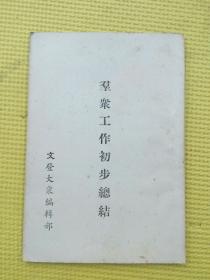 羣衆工作初步總結
文登大衆編輯部